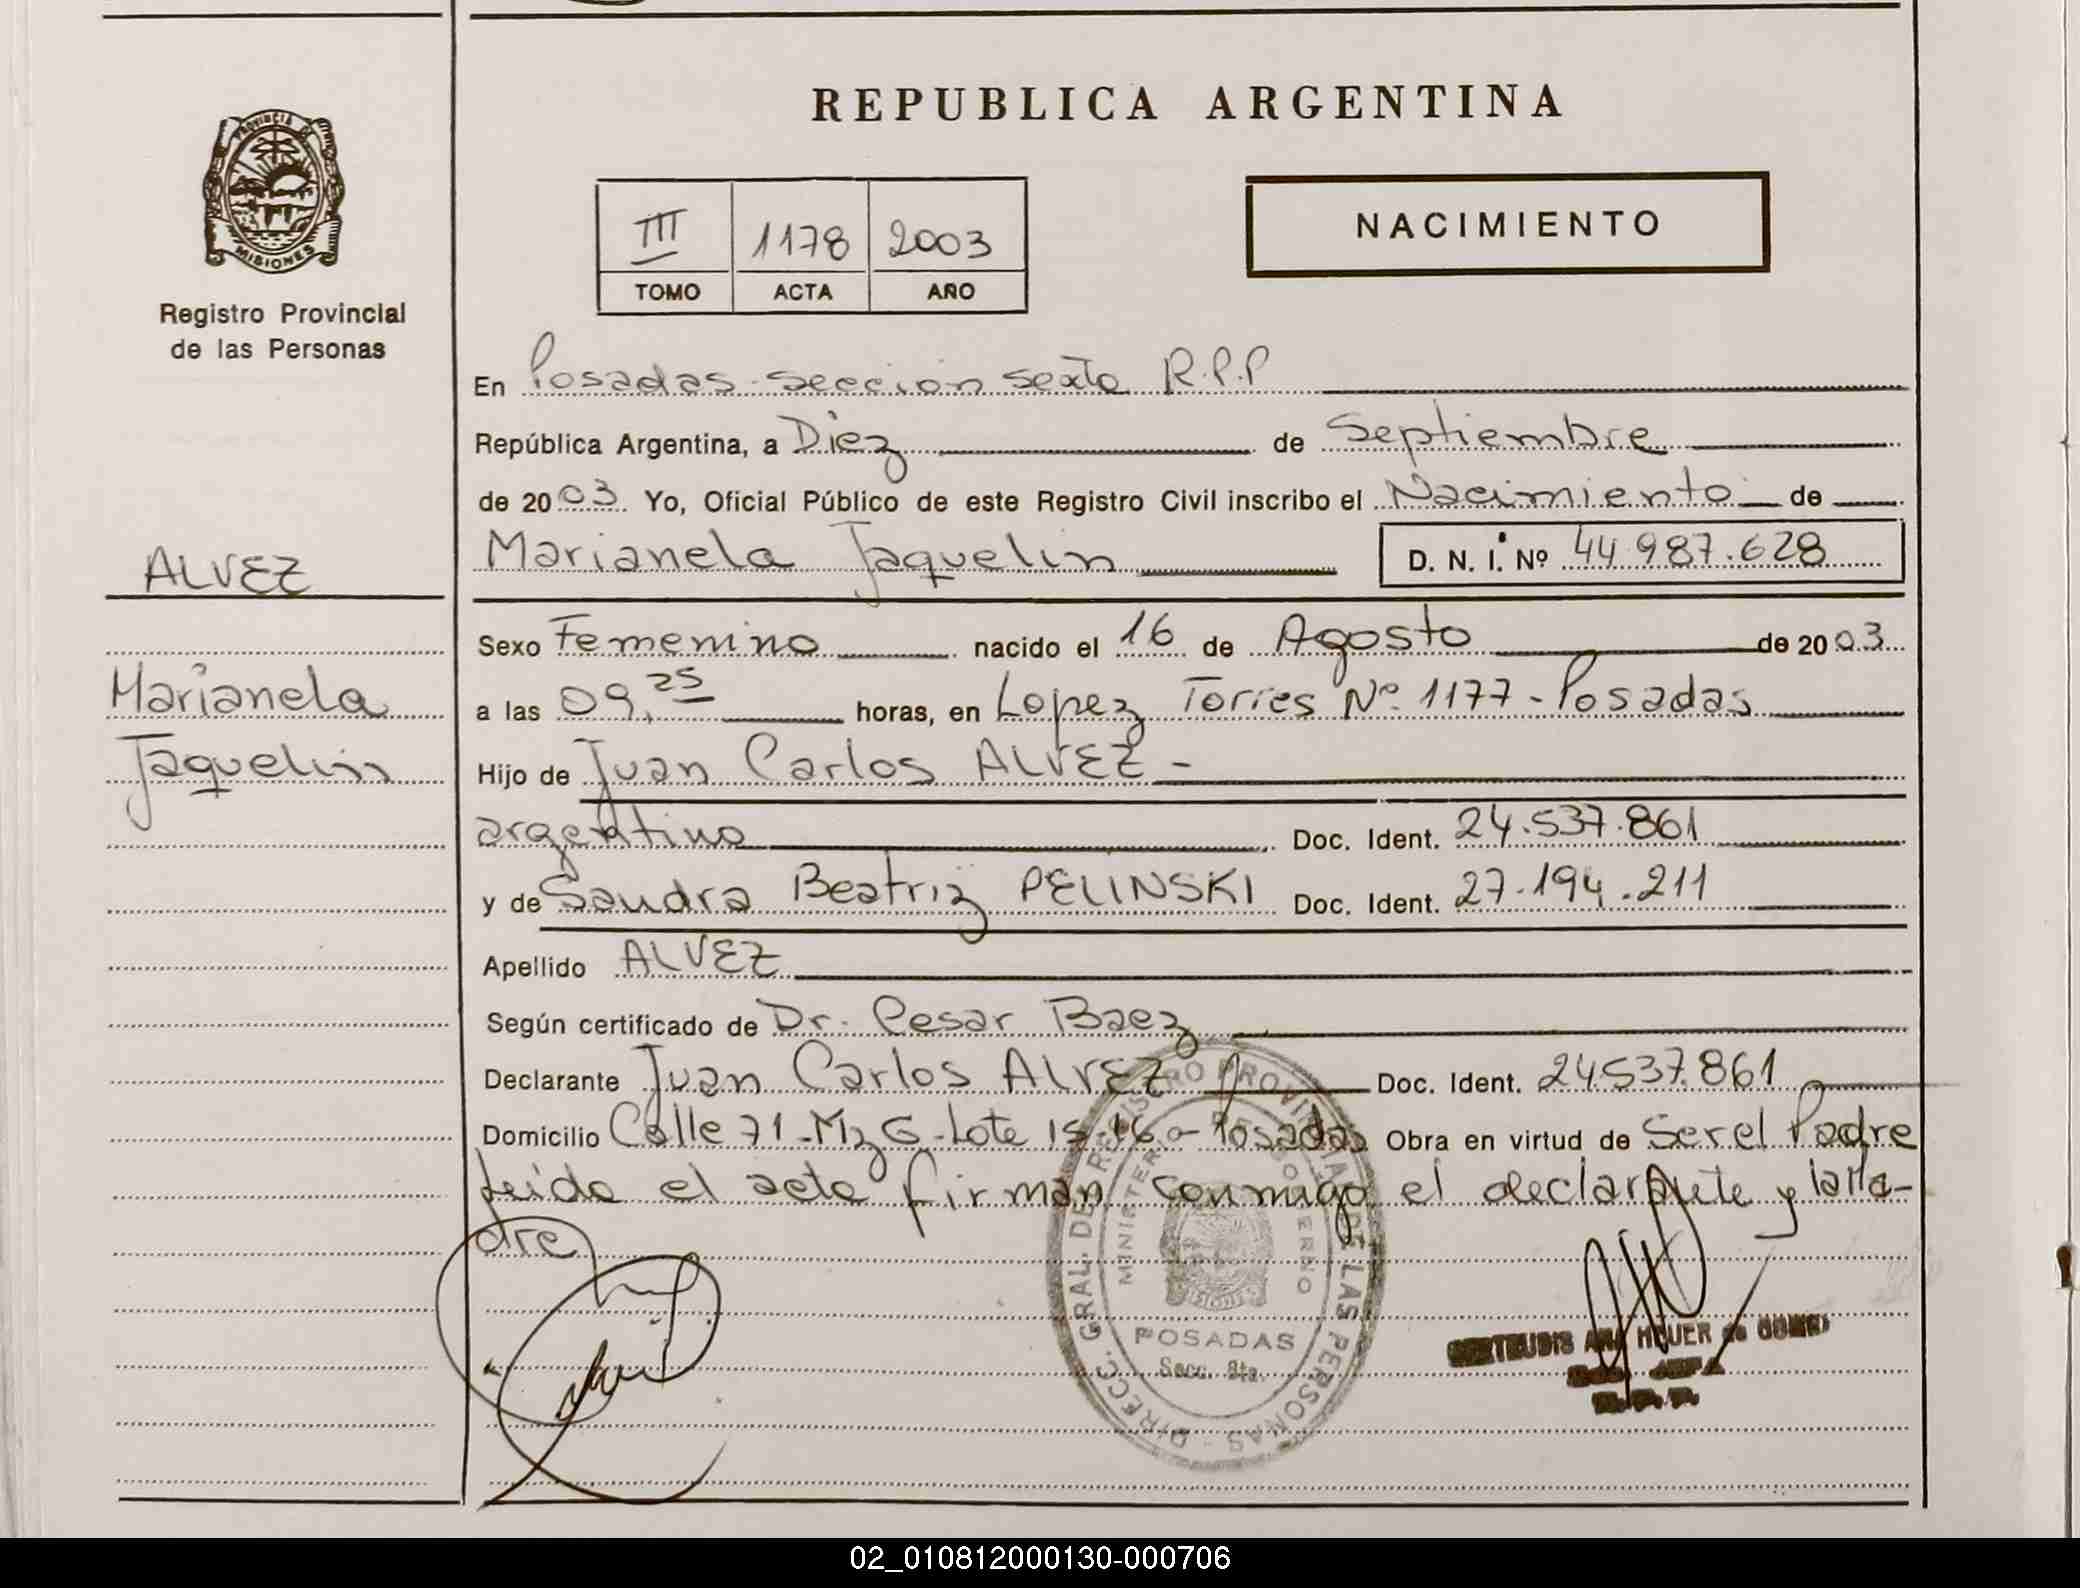 REPUBLICA ARGENTINA
PROVINCIA DE
MISIONES
Registro Provincial
de las Personas
III 1178 2003
TOMO ACTA AÑO
NACIMIENTO
En Posadas-seccion sexta R.P.P
República Argentina, a Diez de Septiembre
de 2003 Yo, Oficial Público de este Registro Civil inscribo el Nacimiento de
Marianela Jaquelin D. N. I. Nº 44.987.628
ALVEZ
Marianela
Jaquelin
Sexo Femenino nacido el 16 de Agosto de 2003
a las 09,25 horas, en Lopez Torres Nº 1177-Posadas
Hijo de Juan Carlos ALVEZ-
argentino Doc. Ident. 24.537.861
y de Sandra Beatriz PELINSKI Doc. Ident. 27.194.211
Apellido ALVEZ
Según certificado de Dr. Cesar Baez
Declarante Juan Carlos ALVEZ Doc. Ident. 24.537.861
Domicilio Calle 71-Mz G-Lote 15-16-Posadas Obra en virtud de Ser el Padre
Leida el acta firman conmigo el declarante y la Ma-
dre
DIRECC. GRAL. DE REGISTRO PROVINCIAL DE LAS PERSONAS
MINISTERIO DE GOBIERNO
POSADAS
Secc.
GERTRUDIS ANA HEUER de
JEFA
R.P.P.
02_010812000130-000706